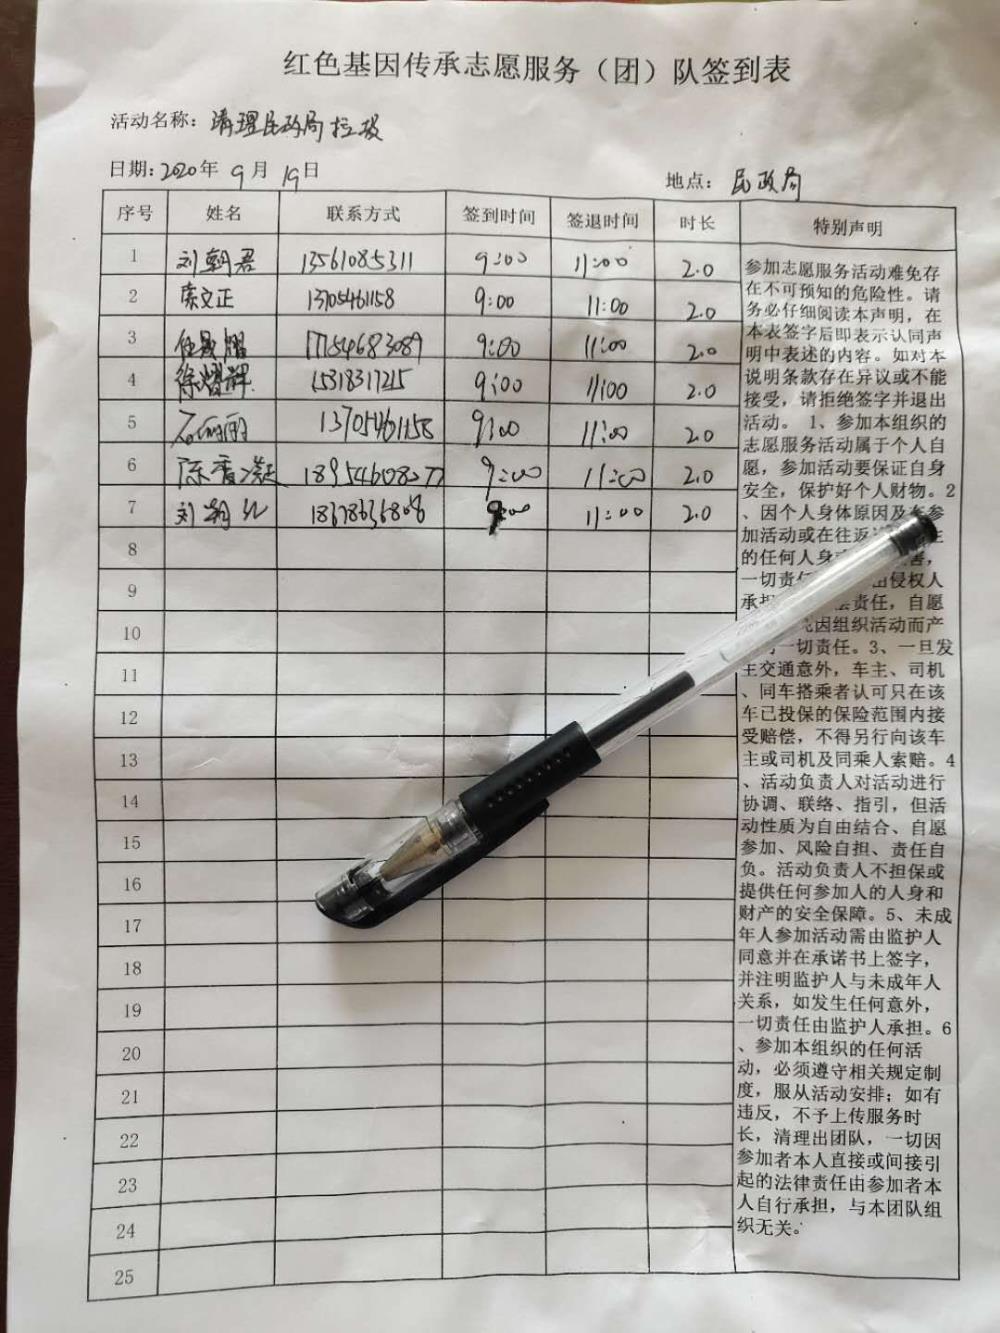 红色基因传承志愿服务（团）队签到表
活动名称：清理民政局垃圾
日期：2020年 9月 19日
地点：民政局
序号 姓名 联系方式 签到时间 签退时间 时长 特别声明
1 刘朝君 13561085311 9:00 11:00 2.0
2 索文正 13705461158 9:00 11:00 2.0
3 17754683089 9:00 11:00 2.0
4 徐熠辉 15318317215 9:00 11:00 2.0
5 13705461158 9:00 11:00 2.0
6 陈香凝 9:00 11:00 2.0
7 9:00 11:00 2.0
8
9
10
11
12
13
14
15
16
17
18
19
20
21
22
23
24
25
参加志愿服务活动难免存
在不可预知的危险性。请
务必仔细阅读本声明，在
本表签字后即表示认同声
明中表述的内容。如对本
说明条款存在异议或不能
接受，请拒绝签字并退出
活动。 1、参加本组织的
志愿服务活动属于个人自
愿，参加活动要保证自身
安全，保护好个人财物。2
、因个人身体原因及在参
加活动或在往返
的任何人身 害，
一切责 由侵权人
承担 责任，自愿
因组织活动而产
一切责任。3、一旦发
生交通意外，车主、司机
、同车搭乘者认可只在该
车已投保的保险范围内接
受赔偿，不得另行向该车
主或司机及同乘人索赔。4
、活动负责人对活动进行
协调、联络、指引，但活
动性质为自由结合、自愿
参加、风险自担、责任自
负。活动负责人不担保或
提供任何参加人的人身和
财产的安全保障。5、未成
年人参加活动需由监护人
同意并在承诺书上签字，
并注明监护人与未成年人
关系，如发生任何意外，
一切责任由监护人承担。6
、参加本组织的任何活
动，必须遵守相关规定制
度，服从活动安排；如有
违反，不予上传服务时
长，清理出团队，一切因
参加者本人直接或间接引
起的法律责任由参加者本
人自行承担，与本团队组
织无关。